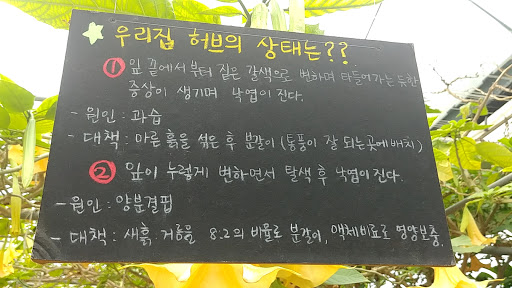 우리집 허브의 상태는??
① 잎 끝에서부터 짙은 갈색으로 변하며 타들어가는 듯한
증상이 생기며 낙엽이 진다.
- 원인 : 과습
- 대책 : 마른 흙을 섞은 후 분갈이 (통풍이 잘 되는곳에 배치)
② 잎이 누렇게 변하면서 탈색 후 낙엽이 진다.
- 원인 : 양분결핍
- 대책 : 새흙, 거름을 8:2의 비율로 분갈이, 액체비료로 영양보충.